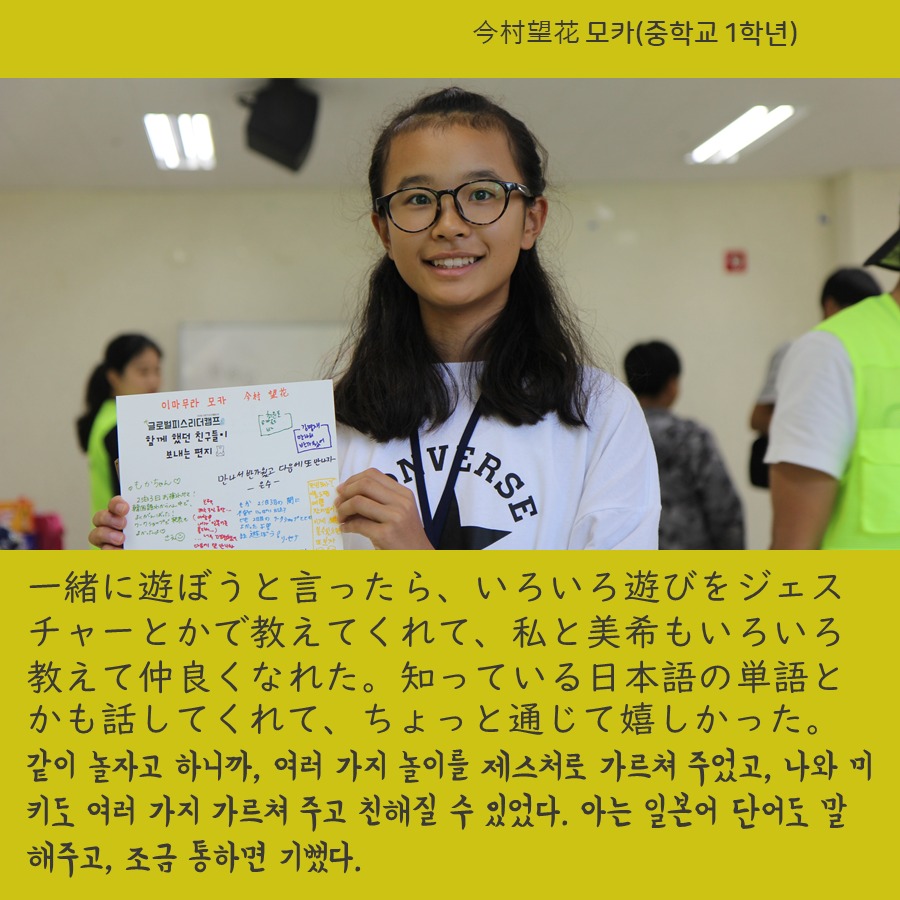 今村望花 모카(중학교 1학년)
이마무라 모카 今村 望花
글로벌피스리더캠프
함께 했던 친구들이
보내는 편지
만나서 반가웠고 다음에 또 만나자~
- 은수 -
もかちゃん♡
CONVERSE
一緒に遊ぼうと言ったら、いろいろ遊びをジェス
チャーとかで教えてくれて、私と美希もいろいろ
教えて仲良くなれた。知っている日本語の単語と
かも話してくれて、ちょっと通じて嬉しかった。
같이 놀자고 하니까, 여러 가지 놀이를 제스처로 가르쳐 주었고, 나와 미
키도 여러 가지 가르쳐 주고 친해질 수 있었다. 아는 일본어 단어도 말
해주고, 조금 통하면 기뻤다.